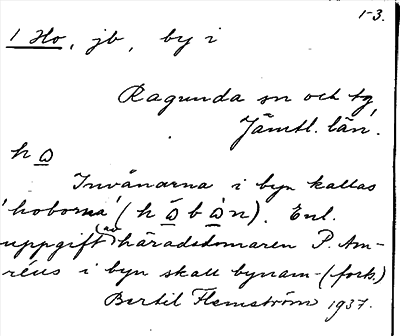 1-3.
1 Ho, jb, by i
Ragunda sn och tg,
Jämtl. län.
h o
Invånarna i byn kallas
'hoborna' (h o b o n). Enl.
uppgift av häradsdomaren P. Am-
réus i byn skall bynam- (forts.)
Bertil Flemström 1937.